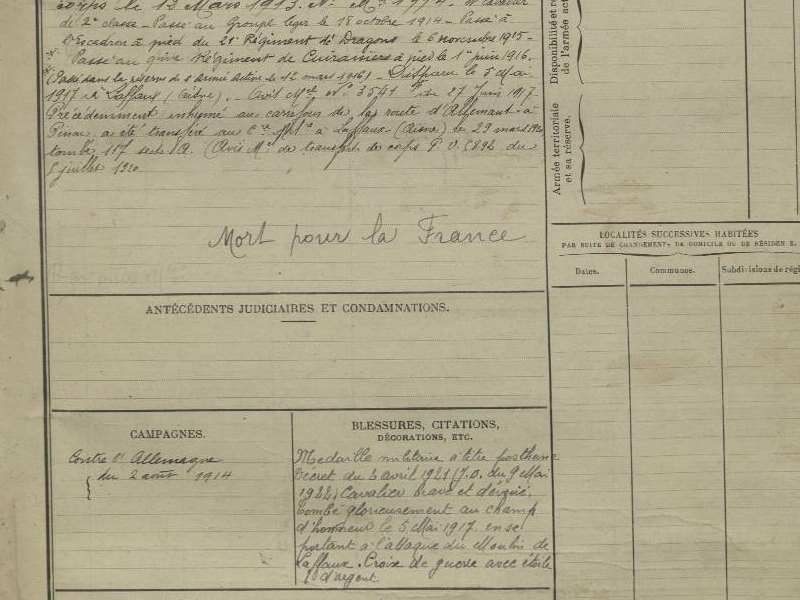 corps le 12 Mars 1913. N° Mle 1974. Cavalier
de 2e classe - Passé au Groupe léger le 18 octobre 1914 - Passé à
l'Escadron à pied du 21e Régiment de Dragons le 6 novembre 1915 -
Passé au Régiment de Cuirassiers à pied le 1er juin 1916.
(Passé dans la réserve de l'Armée Active le 12 mars 1916) - Disparu le 5 Mai
1917 à Laffaux (Aisne). - Avis Mel N° 3541 du 27 Juin 1917.
Précédemment inhumé au carrefour de la route d'Allemant à
Pinon, a été transféré au Cre Mre à Laffaux (Aisne) le 29 mars 1920
tombe 117 A. (Avis Mel de transfert de corps P.V. 5892 du
5 juillet 1920
Mort pour la France
ANTÉCÉDENTS JUDICIAIRES ET CONDAMNATIONS.
CAMPAGNES.
Contre l'Allemagne
du 2 août 1914
BLESSURES, CITATIONS,
DÉCORATIONS, ETC.
Médaille militaire à titre posthume
Décret du 5 avril 1921 J.O. du 9 Mai
1922, Cavalier brave et
tombé glorieusement au champ
d'honneur le 5 Mai 1917, en se
portant à l'attaque du Moulin de
Laffaux. Croix de guerre avec étoile
d'argent
Disponibilité et
de l'armée
Armée territoriale
et sa réserve.
LOCALITÉS SUCCESSIVES HABITÉES
PAR SUITE DE CHANGEMENTS DE DOMICILE OU DE RÉSIDEN
Dates.
Communes.
Subdivisions de régi